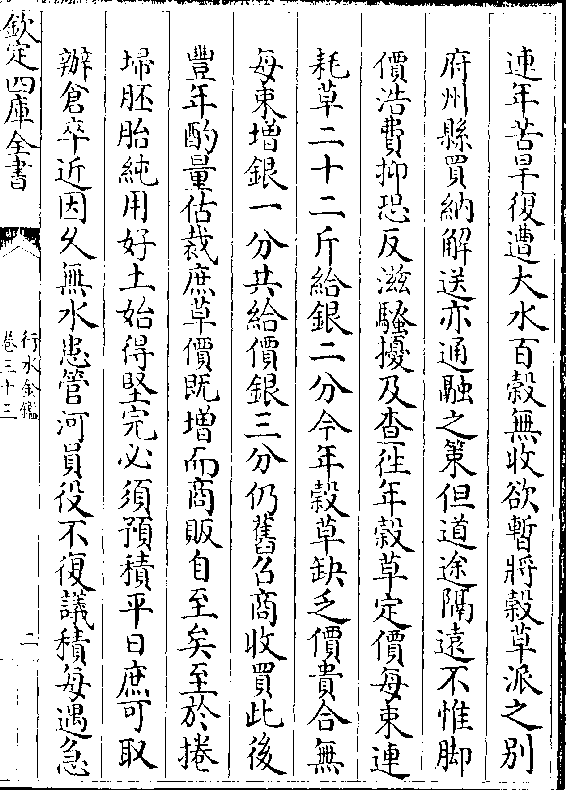 連年苦旱復遭大水百穀無收欲暫將穀草派之别
府州縣買納解送亦通融之策但道途隔遠不惟脚
價浩費抑恐反滋騷擾及查徃年穀草定價每束連
耗草二十二斤給銀二分今年穀草缺乏價貴合無
每束増銀一分共給價銀三分仍舊召商收買此後
豐年酌量估裁庶草價既増而商販自至矣至於捲
埽胚胎純用好土始得堅完必須預積平日庶可取
辦倉卒近因乆無水患管河員役不復議積每遇急
欽定四庫全書
行水金鑑
卷三十三
二